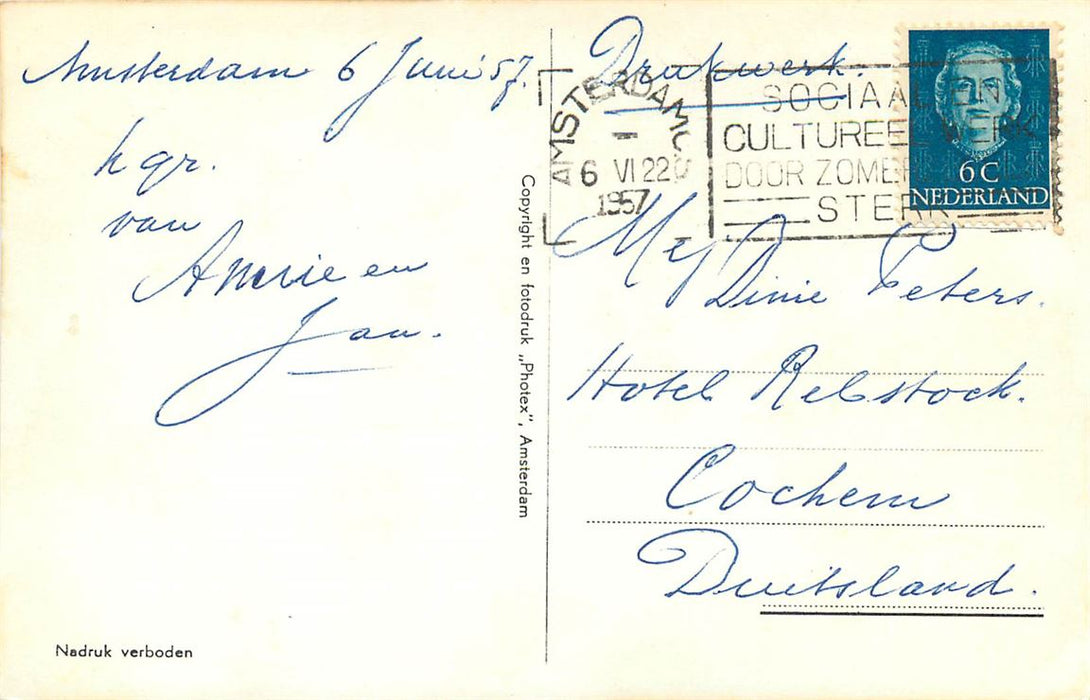 Amsterdam 6 Juni 57.
h gr.
van
Annie en
Jan.
Nadruk verboden
Copyright en fotodruk „Photex”, Amsterdam
Drukwerk.
AMSTERDAM
6 VI 22
1957
SOCIAAL EN
CULTUREEL WERK
DOOR ZOMER
STERK
6 C
NEDERLAND
Mej
Dinie Peters.
Hotel Rebstock.
Cochem
Duitsland.